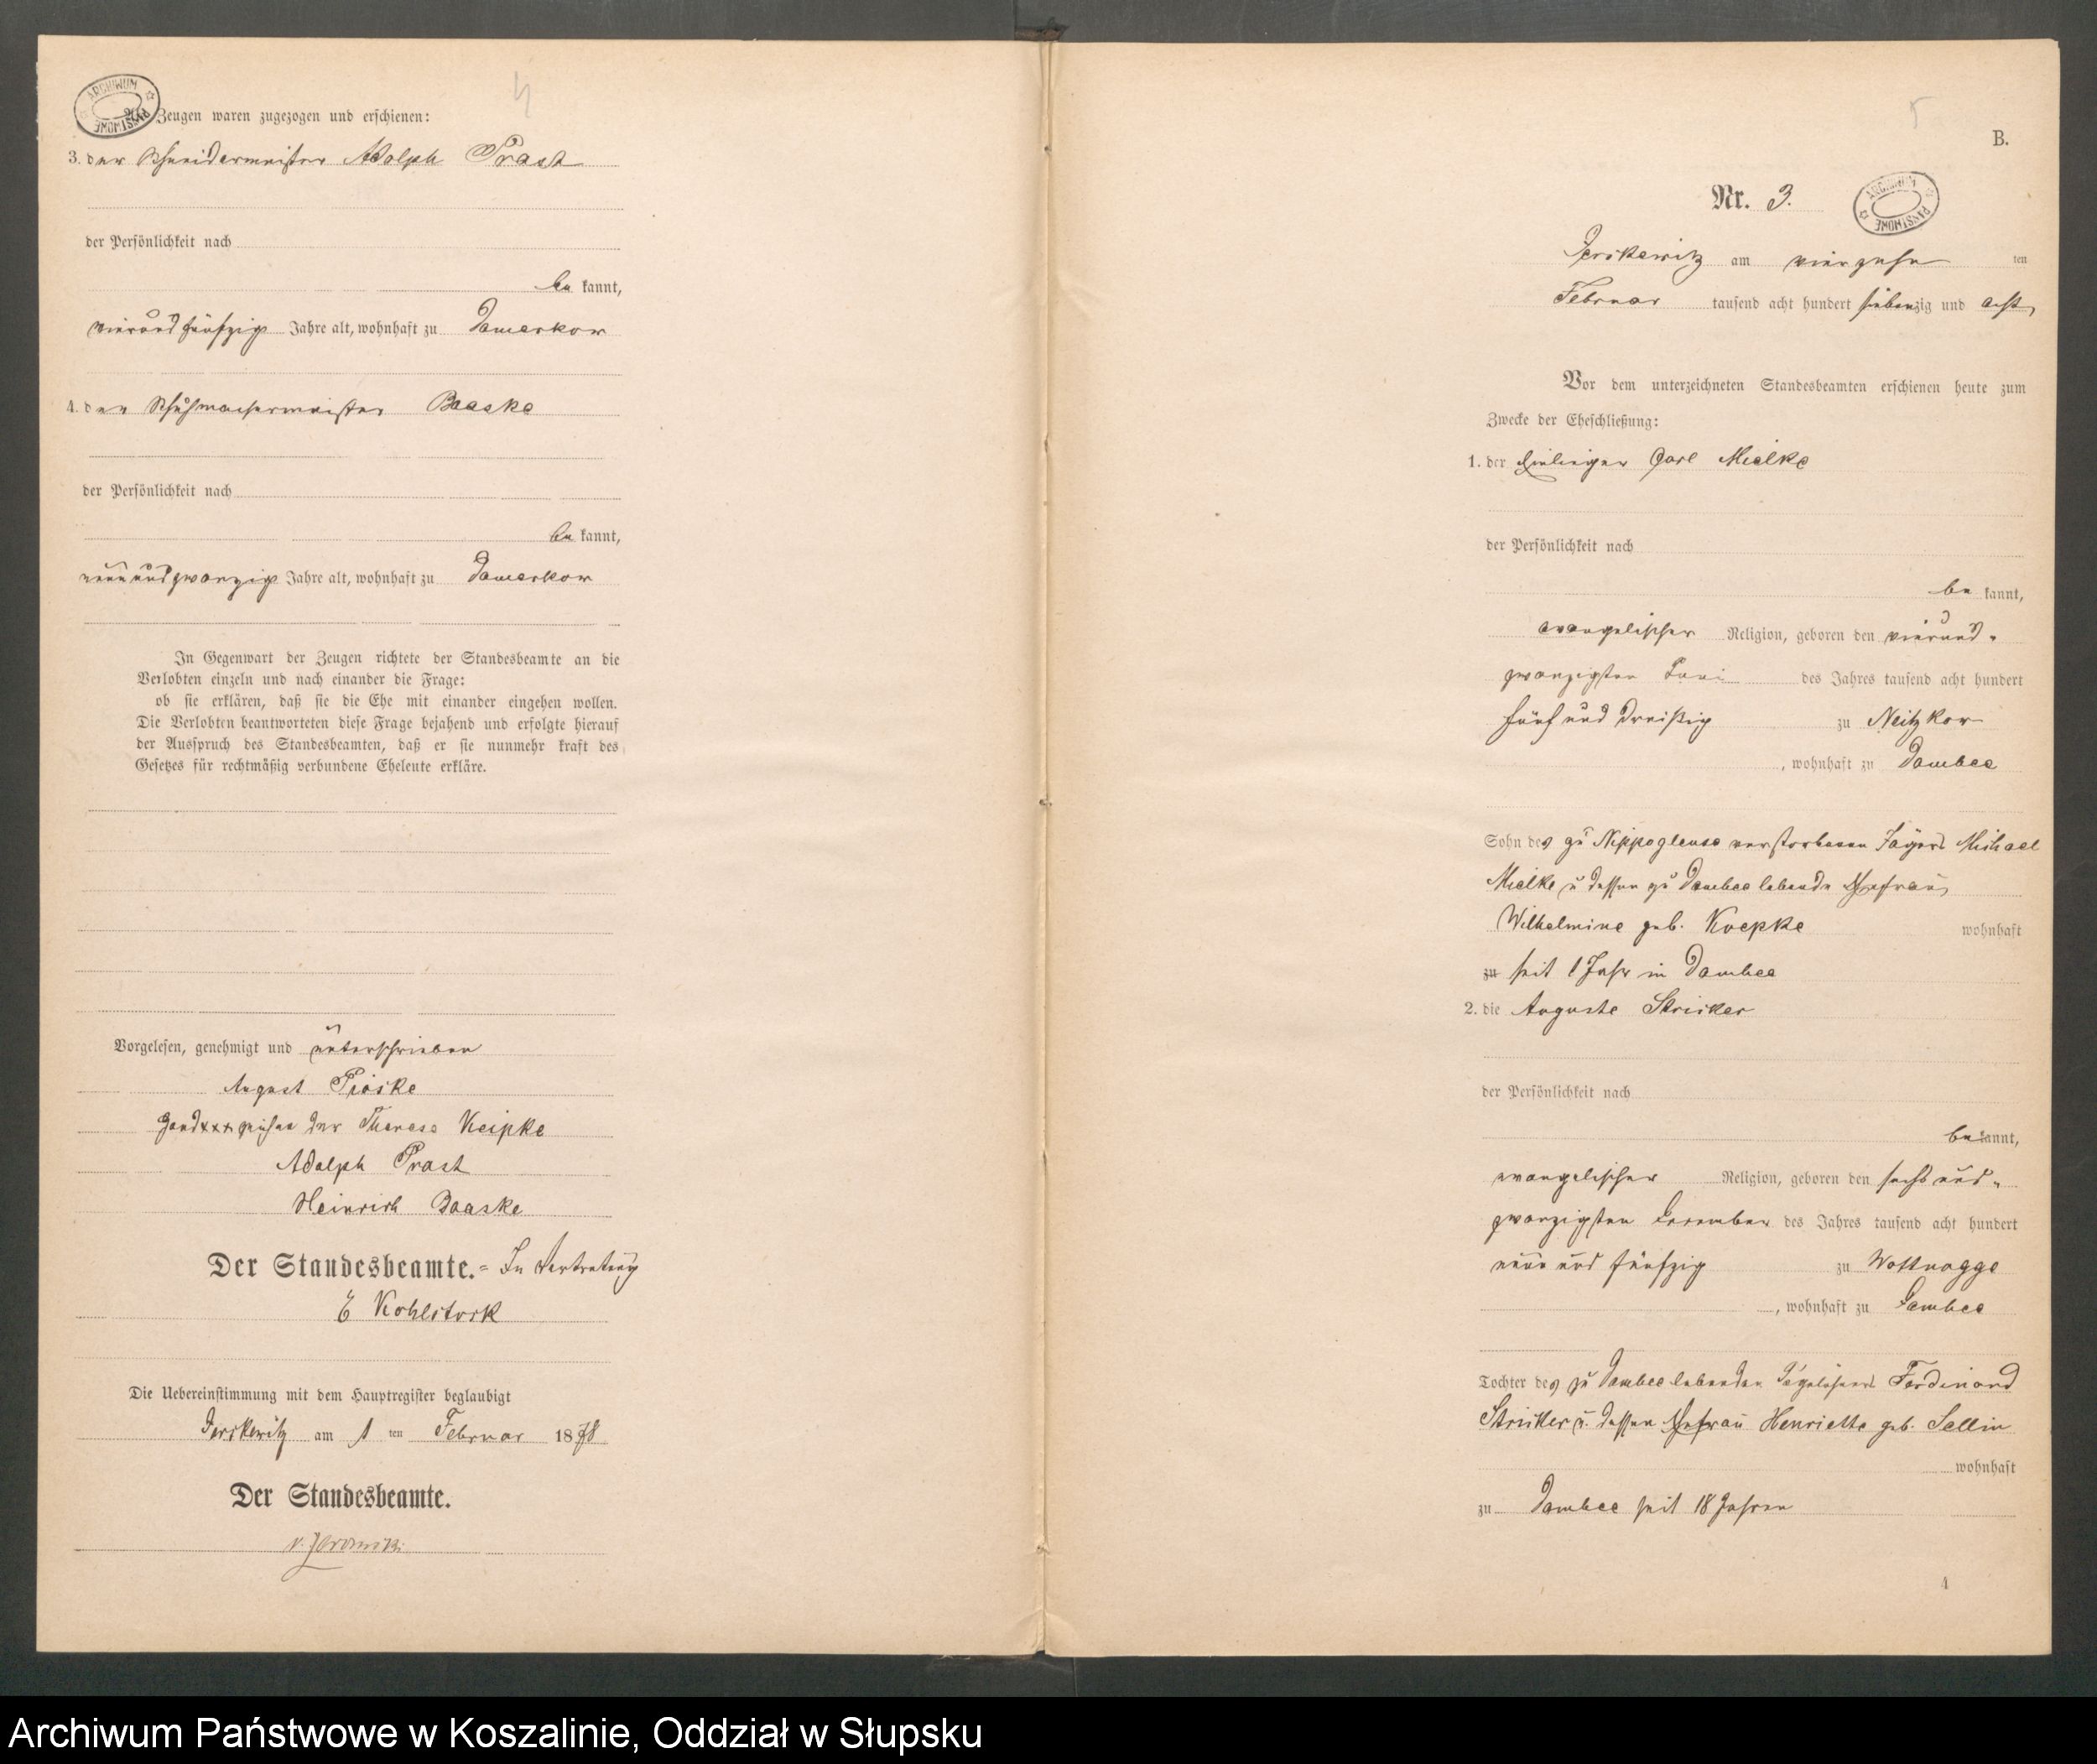 4
ARCHIWUM PAŃSTWOWE
Zeugen waren zugezogen und erschienen:
3. der Schneidermeister Adolph Prast
der Persönlichkeit nach
be kannt,
vierundfünfzig Jahre alt, wohnhaft zu Damerkow
4. den Schuhmachermeister Baaske
der Persönlichkeit nach
be kannt,
neunundzwanzig Jahre alt, wohnhaft zu Damerkow
In Gegenwart der Zeugen richtete der Standesbeamte an die
Verlobten einzeln und nach einander die Frage:
ob sie erklären, daß sie die Ehe mit einander eingehen wollen.
Die Verlobten beantworteten diese Frage bejahend und erfolgte hierauf
der Ausspruch des Standesbeamten, daß er sie nunmehr kraft des
Gesetzes für rechtmäßig verbundene Eheleute erkläre.
Vorgelesen, genehmigt und unterschrieben
August Pioske
Handxxxzeichen der Therese Keipke
Adolph Prast
Heinrich Baaske
Der Standesbeamte.= In Vertretung
E Kohlstock
Die Uebereinstimmung mit dem Hauptregister beglaubigt
Jerskewitz am 1 ten Februar 1878
Der Standesbeamte.
5
B.
Nr. 3.
ARCHIWUM PAŃSTWOWE
Jerskewitz am vierzehn ten
Februar tausend acht hundert siebenzig und acht
Vor dem unterzeichneten Standesbeamten erschienen heute zum
Zwecke der Eheschließung:
1. der Einlieger Carl Mielke
der Persönlichkeit nach
be kannt,
evangelischer Religion, geboren den vierund-
zwanzigsten Juni des Jahres tausend acht hundert
fünf und dreißig zu Neitzkow
, wohnhaft zu Dambee
Sohn des zu Nippoglense verstorbenen Jägers Michael
Mielke u dessen zu Dambee lebende Ehefrau
Wilhelmine geb. Koepke wohnhaft
zu seit 1 Jahr in Dambee
2. die Auguste Stricker
der Persönlichkeit nach
bekannt,
evangelischer Religion, geboren den sechs und-
zwanzigsten Dezember des Jahres tausend acht hundert
neun und fünfzig zu Wottnogge
, wohnhaft zu Dambee
Tochter des zu Dambee lebenden Tagelöhners Ferdinand
Stricker u. dessen Ehefrau Henriette geb. Sellin
wohnhaft
zu Dambee seit 18 Jahren
1
Archiwum Państwowe w Koszalinie, Oddział w Słupsku